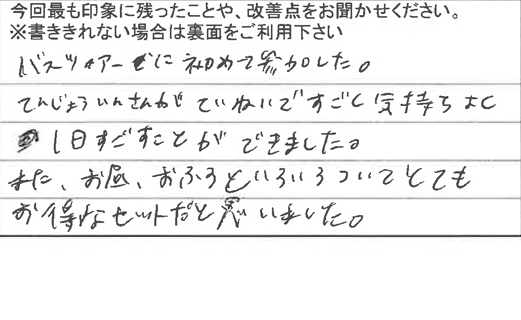 今回最も印象に残ったことや、改善点をお聞かせください。
※書ききれない場合は裏面をご利用下さい
バスツアーに初めて参加した。
てんじょういんさんがていねいですごく気持ちよく
1日すごすことができました。
また、お昼、おふろといろいろついてとても
お得なセットだと思いました。